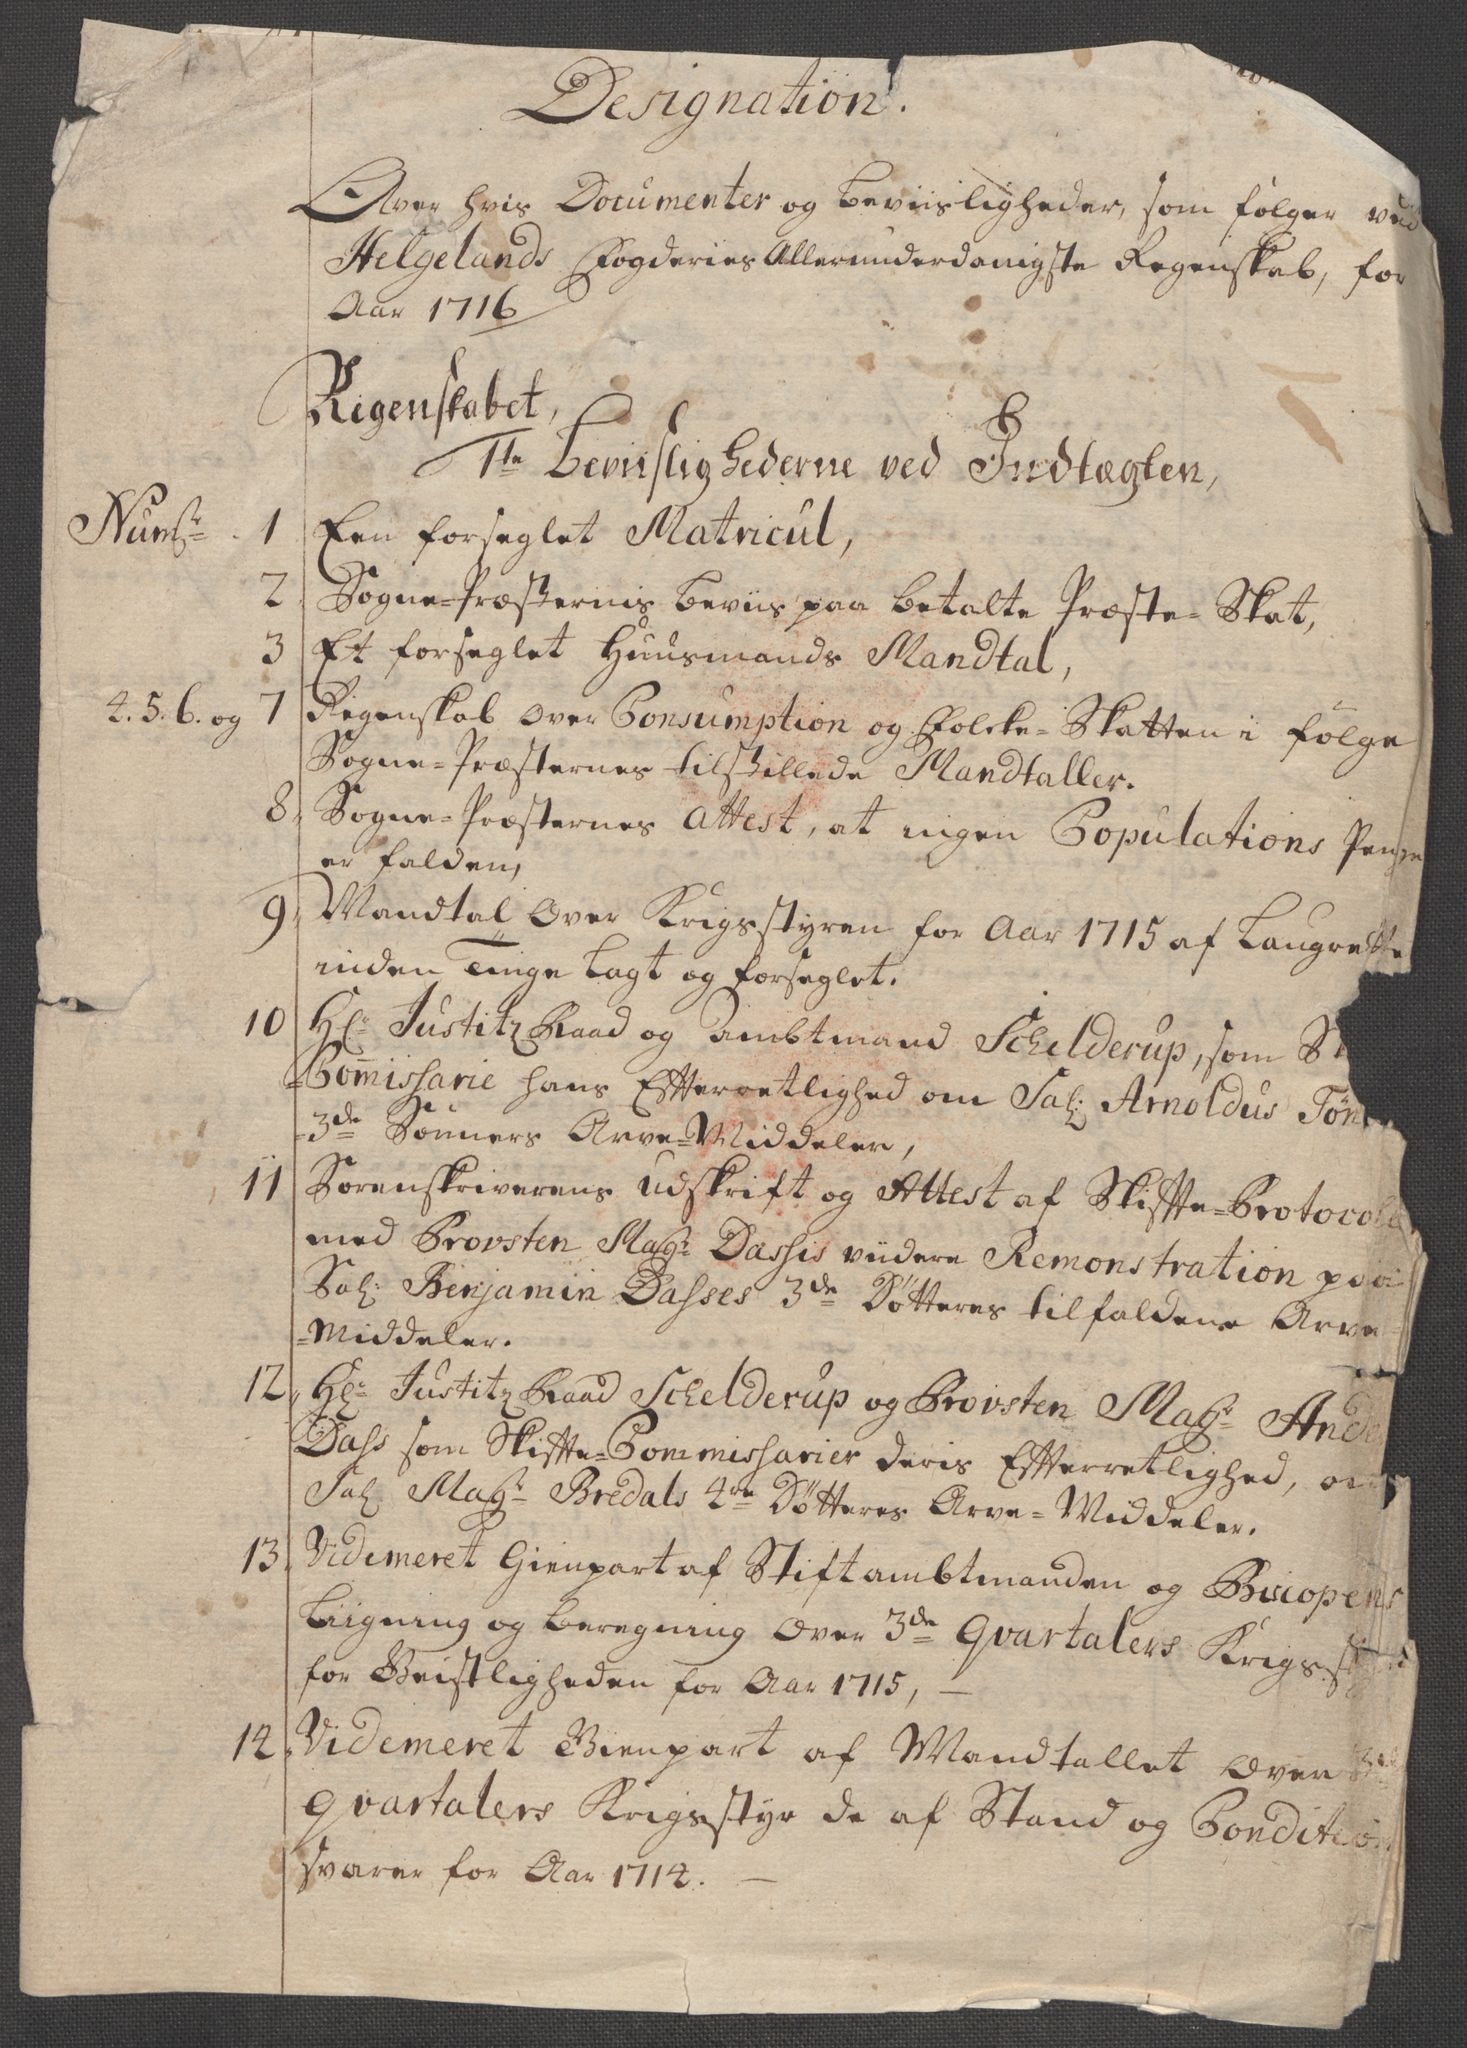 Designation.
Over hvis Documenter og beviisligheder, som følger ved
Helgelands Fogderies Allerunderdanigste Regenskab, for
Aar 1716
Regenskabet,
1te beviislighederne ved Indtægten,
Numr. 1 Een forseglet Matricul,
2 Sogne-Præsternis beviis paa betalte Præste-Skat,
3 Et forseglet Huusmands Mandtal,
4. 5. 6. og 7 Regenskab over Consumption og Folcke-Skatten i følge
Sogne-Præsternes tilstillede Mandtaller.
8, Sogne-Præsternes attest, at ingen Copulations Penge
er falden,
9, Mandtal over Krigsstyren for Aar 1715 af Laugrette
inden Tinge lagt og forseglet.
10 Hr. Justitz Raad og Ambtmand Schelderup, som
Commissarie hans Efterretlighed om Sal: Arnoldus
3de Sønners Arve-Middeler,
11 Sorenskriverens udskrift og Attest af Skiffte-Protocoll
med Provsten Magr. Dassis viidere Remonstration paa
Sal: Benjamin Dasses 3de Døtteres tilfaldene Arve-
-Middeler.
12, Hr. Justitz Raad Schelderup og Provsten Magr.
Dass som Skiffte-Commissarier deris Efterretlighed, om
Sal Magr. Bredals 4re Døtteres Arve-Middeler.
13, Videmeret Gienpart af Stiftambtmanden og Biscopens
Liigning og beregning over 3de Qvartalers
for Geistligheden for Aar 1715, —
14, Videmeret Gienpart af Mandtallet over
Qvartalers Krigsstyr de af Stand og Condition
svarer for Aar 1714. —